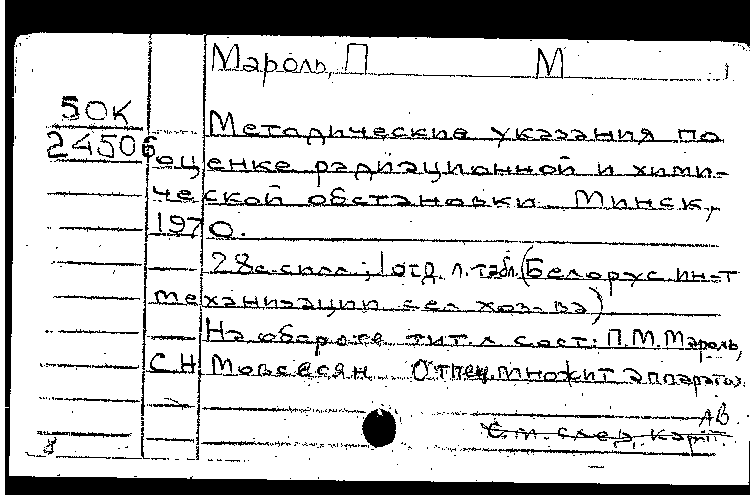 Мароль, П М
50К
24506
Методические указания по
оценке радиационной и хими-
ческой обстановки. Минск,
1970.
28с. с илл.; 1 отд. л. табл. (Белорус. ин-т
механизации сел. хоз-ва)
На обороте тит. л. сост.: П.М. Мароль,
С.Н. Мовсесян. Отпеч. множит. аппаратах.
АВ
См. след. карт.
8